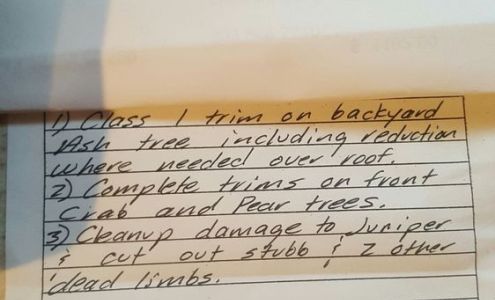 1) Class 1 trim on backyard
Ash tree including reduction
where needed over roof.
2) Complete trims on front
Crab and Pear trees.
3) Cleanup damage to Juniper
& cut out stubb & 2 other
dead limbs.